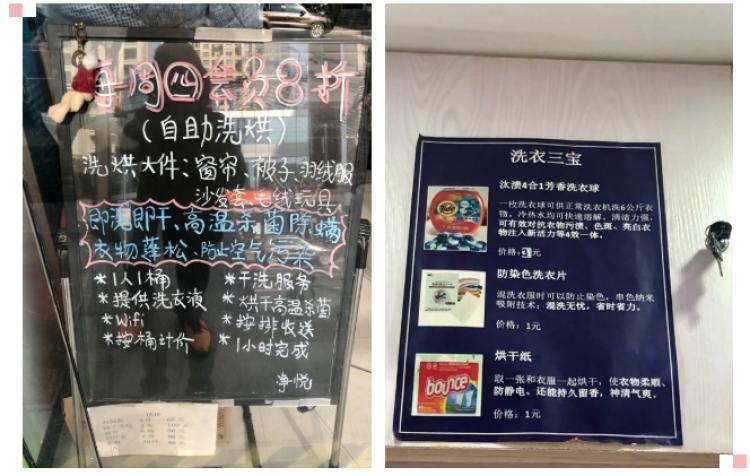 每周四会员8折
(自助洗烘)
洗烘大件:窗帘、被子、羽绒服
沙发套、毛绒玩具
即洗即干、高温杀菌除螨
衣物蓬松、防止空气污染
*1人1桶
*提供洗衣液
*Wifi
*按桶计价
*干洗服务
*烘干高温杀菌
*安排收送
*1小时完成
净悦
洗衣三宝
汰渍4合1芳香洗衣球
一枚洗衣球可供正常洗衣机洗6公斤衣
物。冷热水均可快速溶解,清洁力强,
可有效对抗衣物污渍、色斑、亮白衣
物注入新活力等4效一体。
价格:3元
防染色洗衣片
混洗衣服时可以防止染色,串色纳米
吸附技术;混洗无忧,省时省力。
价格:1元
烘干纸
bounce
取一张和衣服一起烘干,使衣物柔顺、
防静电、还能持久留香,神清气爽。
价格:1元